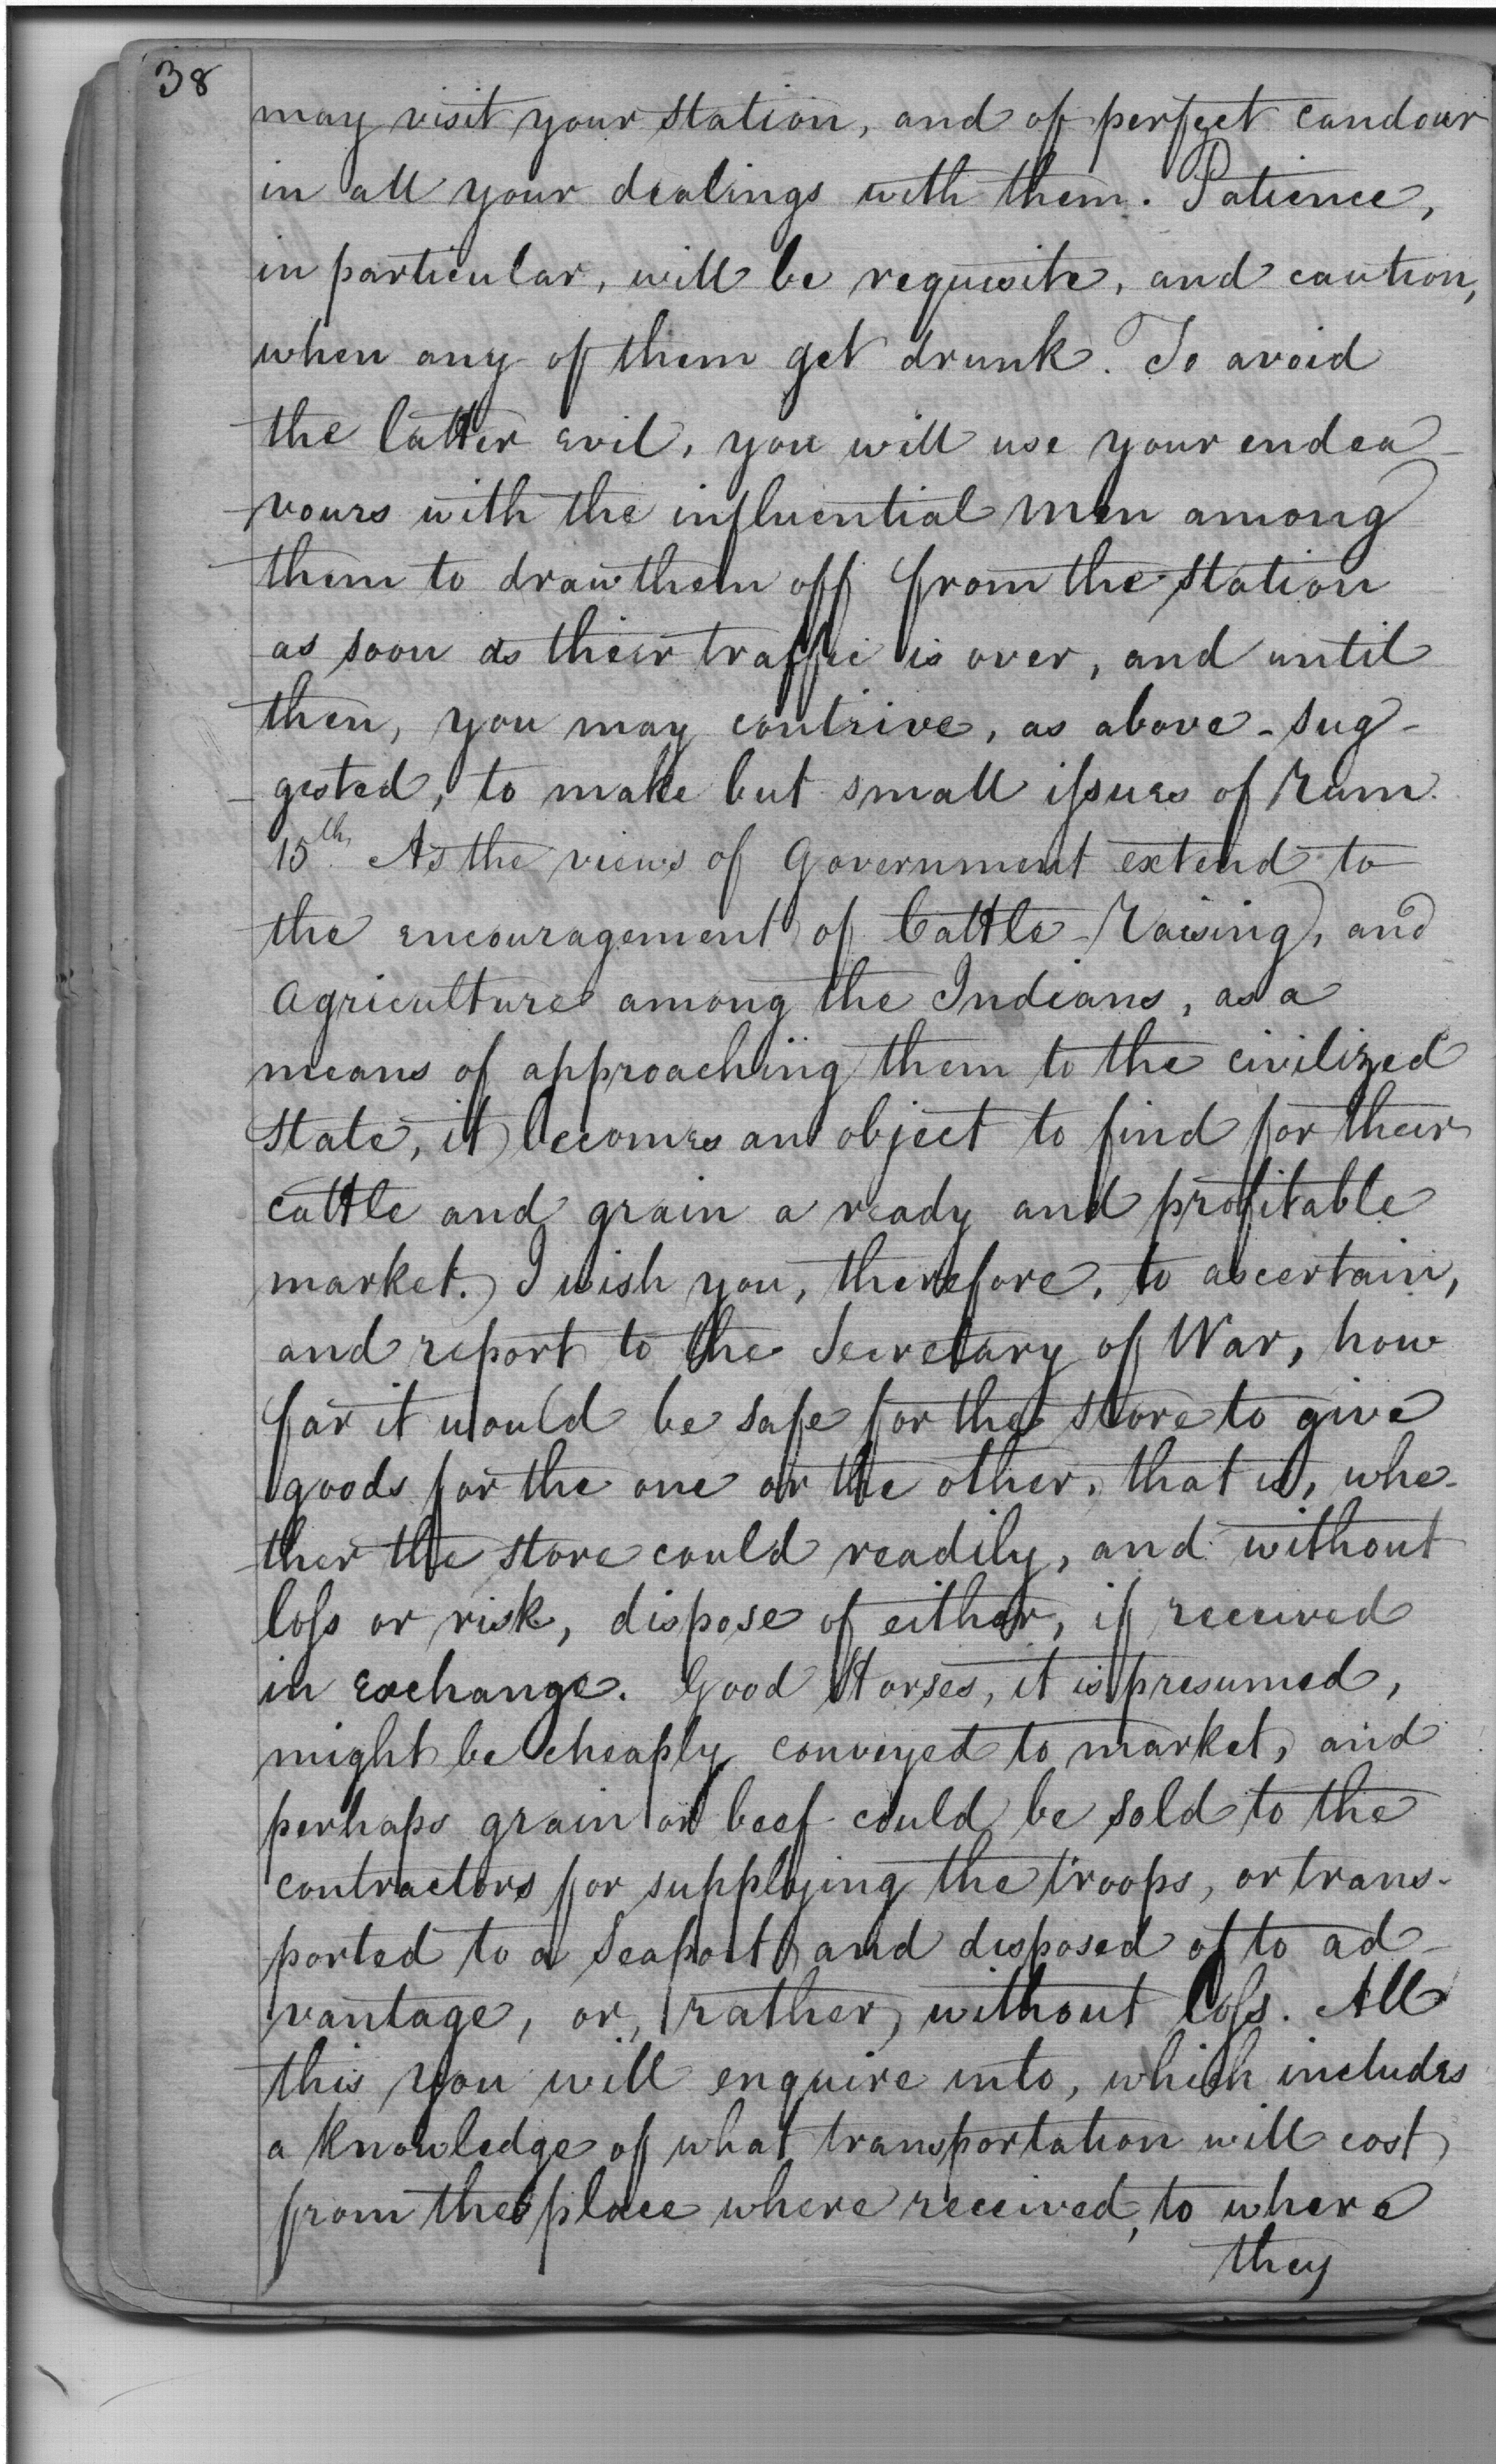 38
may visit your station, and of perfect candour
in all your dealings with them. Patience,
in particular, will be requisite, and caution,
when any of them get drunk. To avoid
the latter evil, you will use your endea-
vours with the influential men among
them to draw them off from the station
as soon as their traffic is over, and until
then, you may contrive, as above-sug-
gested, to make but small issues of Rum.
15th. As the views of Government extend to
the encouragement of Cattle-Raising, and
Agriculture among the Indians, as a
means of approaching them to the civilized
state, it becomes an object to find for their
cattle and grain a ready and profitable
market. I wish you, therefore, to ascertain,
and report to the Secretary of War, how
far it would be safe for the store to give
goods for the one or the other, that is, whe-
ther the store could readily, and without
loss or risk, dispose of either, if received
in exchange. Good Horses, it is presumed,
might be cheaply conveyed to market, and
perhaps grain or beef could be sold to the
contractors for supplying the troops, or trans-
ported to a Seaport and disposed of to ad-
vantage, or, rather, without loss. All
this you will enquire into, which includes
a knowledge of what transportation will cost
from the place where received, to where
they